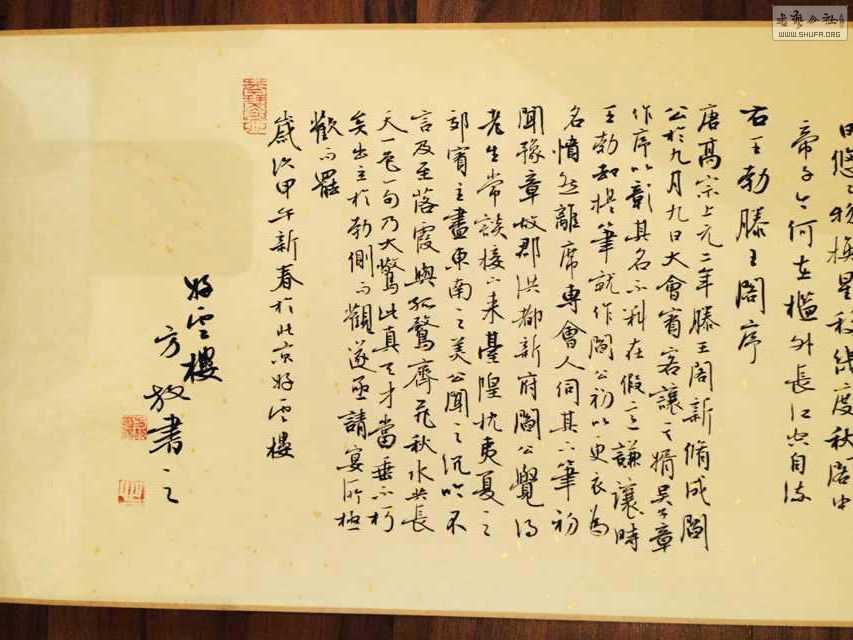 日悠〻物換星移幾度秋閣中
帝子今何在檻外長江空自流
右王勃滕王閣序
唐高宗上元二年滕王閣新脩成閻
公於九月九日大會賓客讓其婿吳子章
作序以彰其名不料在假意謙讓時
王勃卻提筆就作閻公初以更衣為
名憤然離席專會人伺其下筆初
聞豫章故郡洪都新府閻公覺得
老生常談接下來臺隍枕夷夏之
郊賓主盡東南之美公聞之沉吟不
言及至落霞與孤鶩齊飛秋水共長
天一色一句乃大驚此真天才當垂不朽
矣出主於勃側而觀遂亟請宴所極
歡而罷
歲次甲午新春於北京好雲樓
好雲樓
方放書之
書藝公社
WWW.SHUFA.ORG